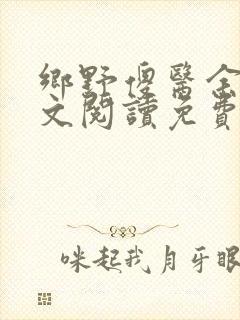 鄉野傻醫全
文閱讀免費
咪起我月牙眼